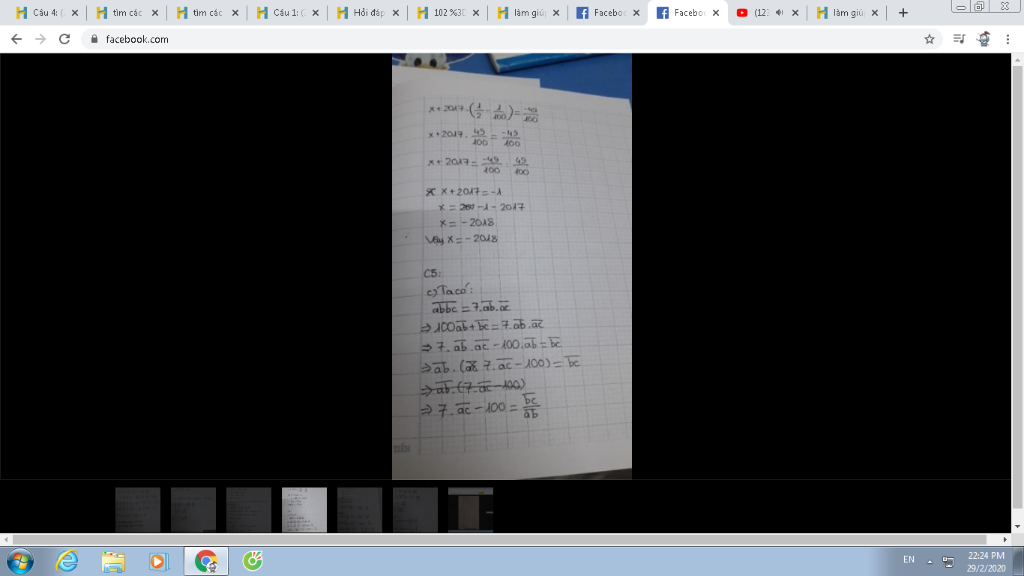 Câu 4: (
tìm các
tìm các
Câu 1: (
Hỏi đáp
102 %3D
làm giú
Facebo
Facebo
(12
làm giú
facebook.com
x+2017.(1/2 - 1/100) = -49/100
x+2017. 49/100 = -49/100
x+2017 = -49/100 : 49/100
x+2017=-1
x = -1-2017
x = -2018
Vậy x = -2018
C5:
c) Ta có:
a̅b̅b̅c̅ = 7.a̅b̅.a̅c̅
⇒ 100a̅b̅+b̅c̅ = 7.a̅b̅.a̅c̅
⇒ 7.a̅b̅.a̅c̅ - 100.a̅b̅ = b̅c̅
⇒ a̅b̅.(7.a̅c̅ - 100) = b̅c̅
⇒ a̅b̅.(7.a̅c̅ - 100)
⇒ 7.a̅c̅ - 100 = b̅c̅/a̅b̅
EN
22:24 PM
29/2/2020